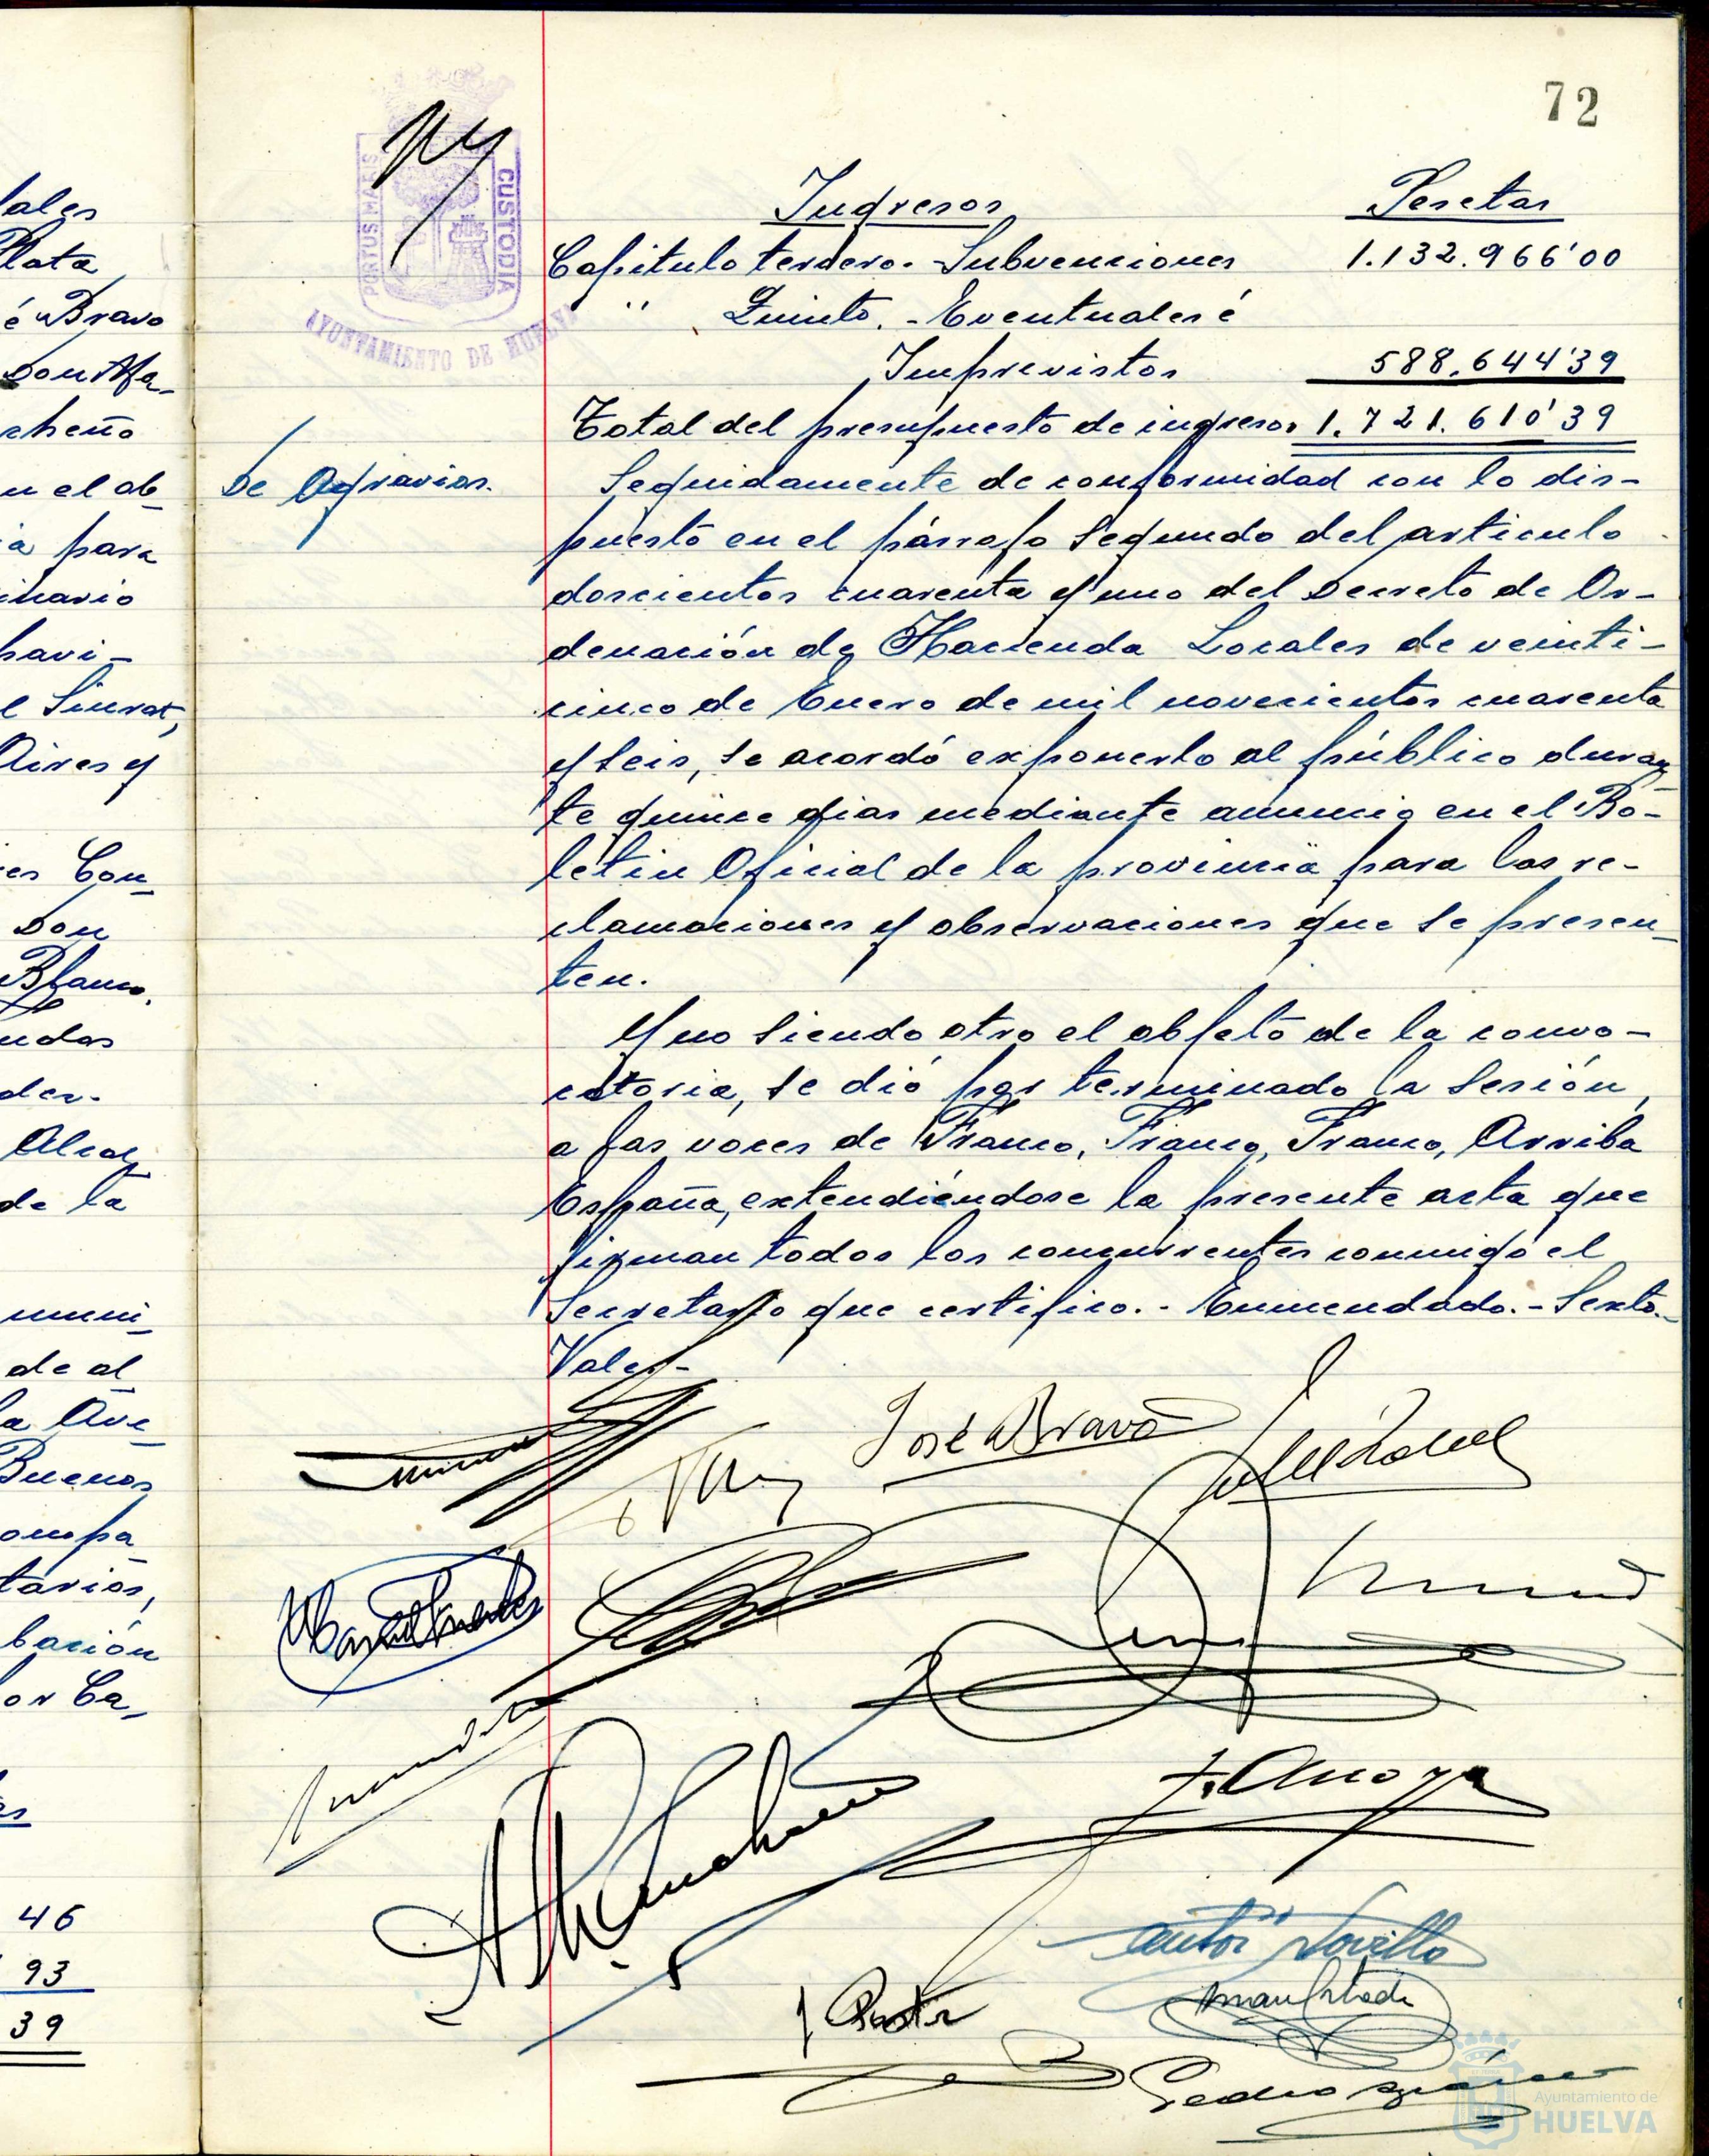 72
PORTUS MARIS
CUSTODIA
AYUNTAMIENTO DE HUELVA
Ingresos Pesetas
Capitulo tercero.- Subvenciones 1.132.966'00
" Quinto.- Eventuales é
Imprevistos 588.644'39
Total del presupuesto de ingresos 1.721.610'39
De Agravios.
Seguidamente de conformidad con lo dis-
puesto en el párrafo segundo del articulo
doscientos cuarenta y uno del Decreto de Or-
denación de Hacienda Locales de veinti-
cinco de Enero de mil novecientos cuarenta
y seis, se acordó exponerlo al público duran
te quince dias mediante anuncio en el Bo-
letin Oficial de la provincia para las re-
clamaciones y observaciones que se presen-
ten.
Y no siendo otro el objeto de la convo-
catoria, se dió por terminado la sesión,
a las voces de Franco, Franco, Franco, Arriba
España, extendiéndose la presente acta que
firman todos los concurrentes conmigo el
Secretario que certifico.- Enmendado.- Sexto.-
Vale.-
José Bravo
Pedro
lales
Plata
é Bravo
Don Ma-
cheño
en el ab
a para
inario
havi-
Aires y
es Con-
Don
Blanco.
udas
des.
Alcal
de la
muni-
de al
a Ave
Buenos
ompa
tarios,
bación
or Ca-
es
46
93
39
Ayuntamiento de
HUELVA